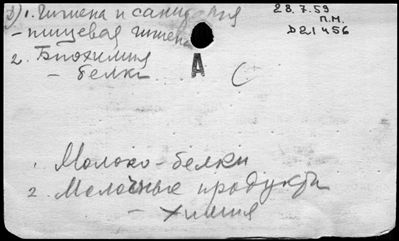 3) 1. Гигиена и санитария
28.7.59
- пищевая гигиена
П.М.
D21456
2. Биохимия
- белки
А
1. Молоко-белки
2. Молочные продукты
- химия